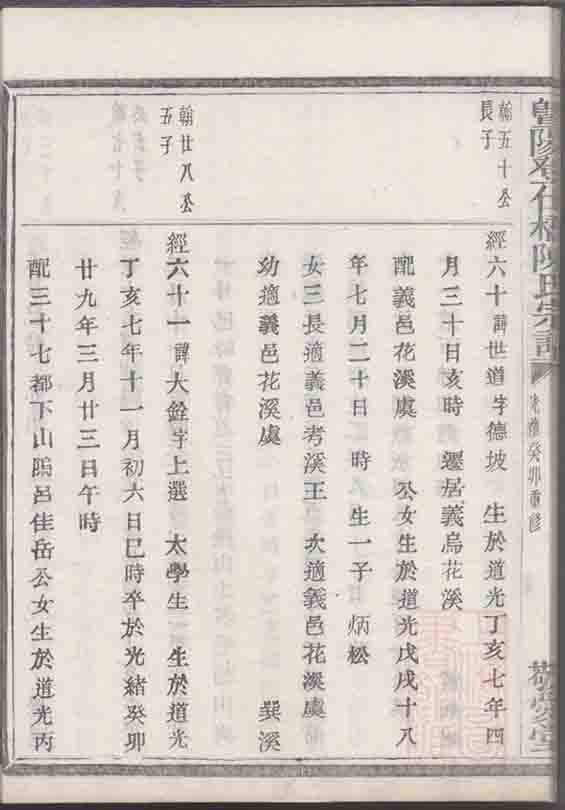 陳氏宗譜
光緒癸卯重修
翰五十公
長子
經六十諱世道字德坡 生於道光丁亥七年四
月三十日亥時 遷居義烏花溪
配義邑花溪虞 公女生於道光戊戌十八
年七月二十日 時 生一子 炳松
女三長適義邑考溪王 次適義邑花溪虞
幼適義邑花溪虞 巽溪
翰廿八公
五子
經六十一諱大銓字上選 太學生 生於道光
丁亥七年十一月初六日巳時卒於光緒癸卯
廿九年三月廿三日午時
配三十七都下山 呂佳岳公女生於道光丙